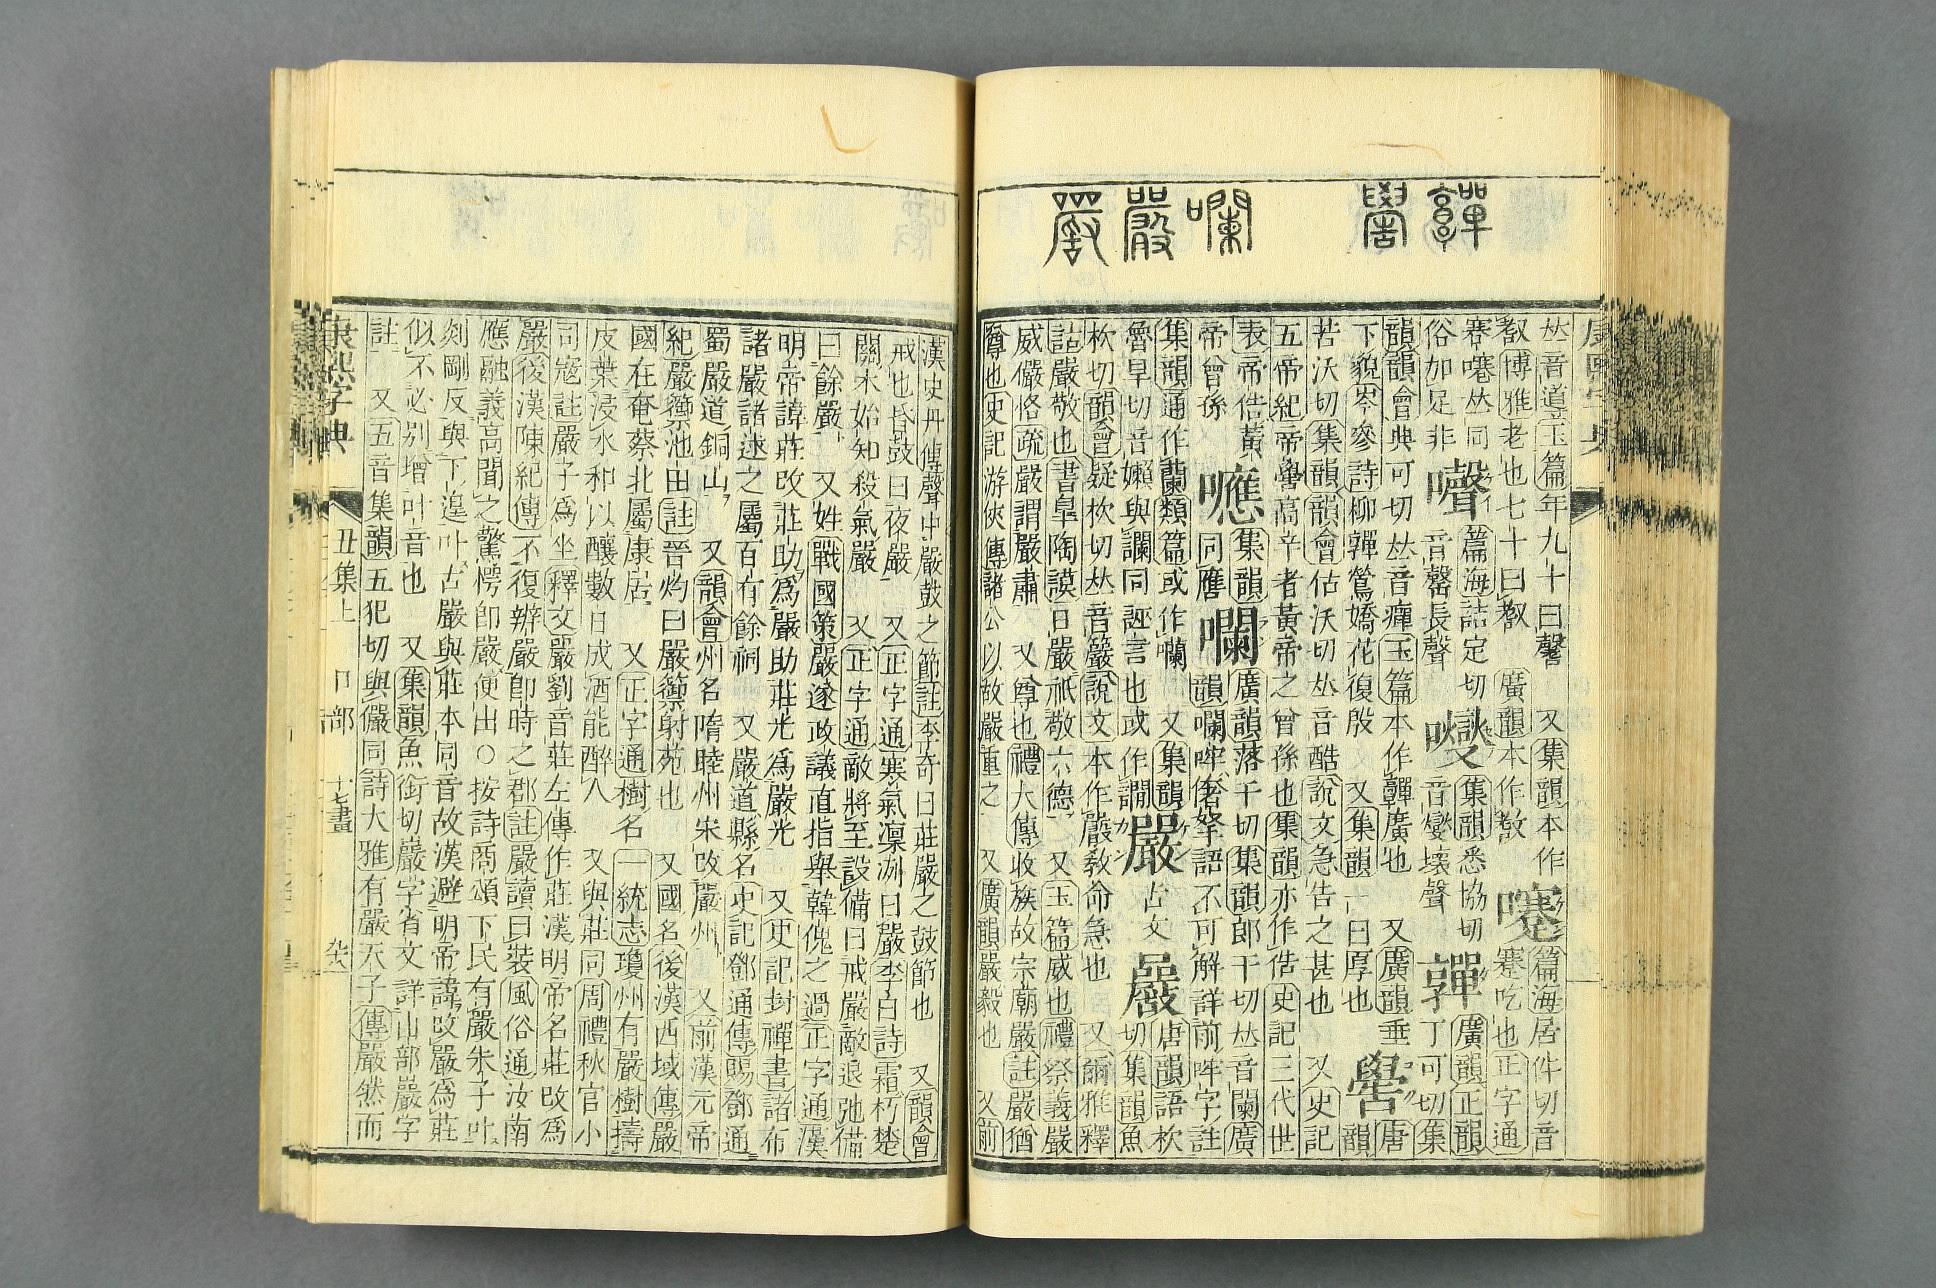 嚲 嚳 嚂 嚴 𠪚
𠀤音道玉篇年九十曰䵻 又集韻本作
㪟博雅老也七十曰㪟 廣韻本作㪟 㘔篇海居件切音
蹇㘔𠀤同 篇海詰定切 蹇吃也正字通
俗加足非 嚫音罄長聲 集韻悉協切 音燮壞聲 嚲廣韻正韻
韻韻會典可切𠀤音癉玉篇本作奲廣也 又廣韻垂 丁可切集
下貌岑參詩柳嚲鶯嬌花復殷 又集韻一曰厚也 嚳唐韻
苦沃切集韻韻會枯沃切𠀤音酷說文急告之甚也 又史記
五帝紀帝嚳高辛者黃帝之曾孫也集韻亦作俈史記三代世
表帝俈黃帝曾孫 噟集韻同應 囒廣韻落干切集韻郎干切𠀤音闌廣
韻囒哰𠌫拏語不可解詳前哰字註
集韻通作闌類篇或作㘓 又集韻
魯旱切音嬾與讕同誣言也或作譋 嚴古文 𠪚唐韻語杴切集韻魚
杴切韻會疑杴切𠀤音籛說文本作𠪚敎命急也 又爾雅釋
詁嚴敬也書臯陶謨日嚴祇敬六德 又玉篇威也禮祭義嚴
威儼恪疏嚴謂嚴肅 又尊也禮大傳收族故宗廟嚴註嚴猶
尊也史記游俠傳諸公以故嚴重之 又廣韻嚴毅也 又前
漢史丹傳聲中嚴鼓之節註李奇曰莊嚴之鼓節也 又韻會
戒也昏鼓曰夜嚴 又正字通寒氣凛冽曰嚴李白詩霜朽楚
關木始知殺氣嚴 又正字通敵將至設備曰戒嚴敵退弛備
曰餘嚴 又姓戰國策嚴遂政議直指舉韓傀之過正字通漢
明帝諱莊改莊助爲嚴助莊光爲嚴光 又史記封禪書諸布
諸嚴諸逑之屬百有餘祠 又嚴道縣名史記鄧通傳賜鄧通
蜀嚴道銅山 又韻會州名隋睦州宋改嚴州 又前漢元帝
紀嚴籞池田註晉灼曰嚴籞射苑也 又國名後漢西域傳嚴
國在奄蔡北屬康居 又正字通樹名一統志瓊州有嚴樹擣
皮葉浸水和以釀數日成酒能醉人 又與莊同周禮秋官小
司寇註嚴子爲坐釋文嚴劉音莊左傳作莊漢明帝名莊改爲
嚴後漢陳紀傳不復辨嚴卽時之郡註嚴讀曰裝風俗通汝南
應融義高聞之驚愕卽嚴便出○按詩商頌下民有嚴朱子叶
剡剛反與下遑叶古嚴與莊本同音故漢避明帝諱改嚴爲莊
似不必別增叶音也 又集韻魚銜切巖字省文詳山部巖字
註 又五音集韻五犯切與儼同詩大雅有嚴天子傳嚴然而
康熙字典 丑集上 口部 十七畫